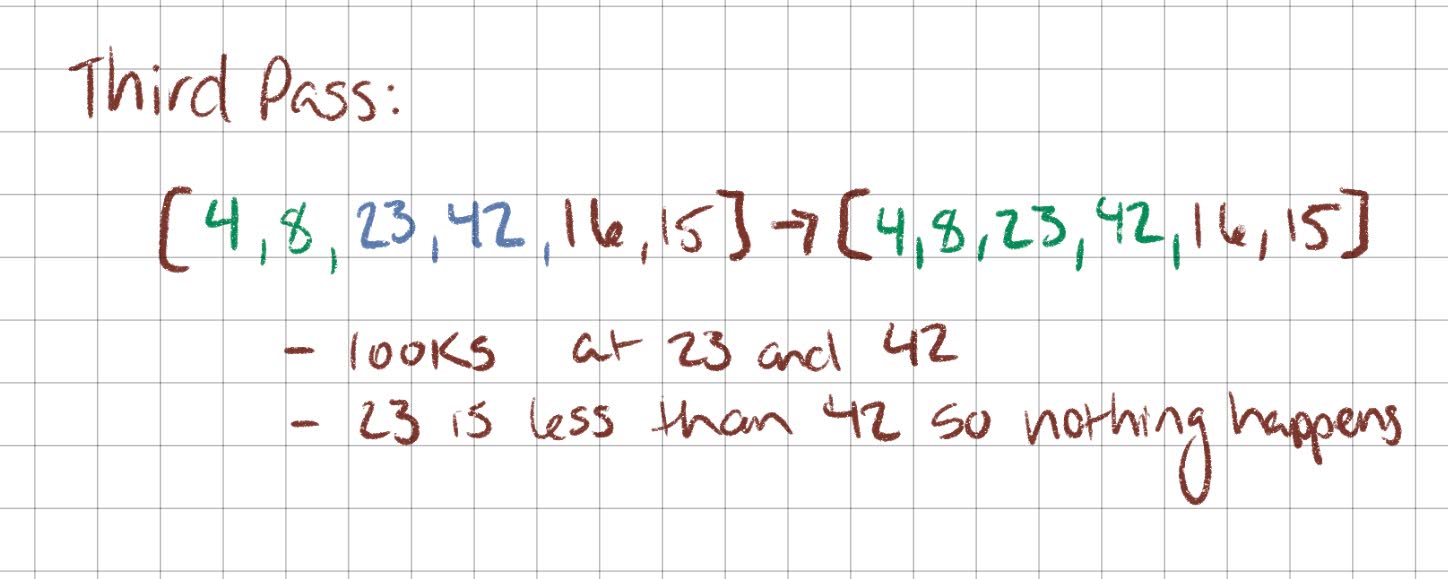 Third Pass:
[4, 8, 23, 42, 16, 15] → [4, 8, 23, 42, 16, 15]
- looks at 23 and 42
- 23 is less than 42 so nothing happens